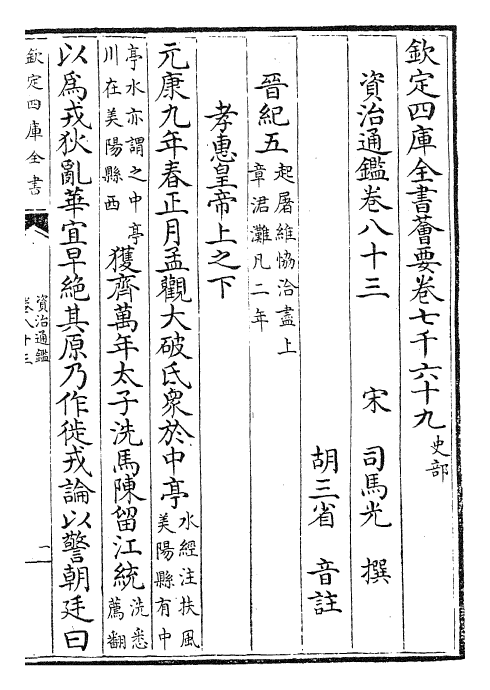 欽定四庫全書薈要卷七千六十九 史部
資治通鑑卷八十三
宋 司馬光 撰
胡三省 音註
晉紀五 起屠維協洽盡上
章涒灘凡二年
孝惠皇帝上之下
元康九年春正月孟觀大破氐衆於中亭 水經注扶風
美陽縣有中
亭水亦謂之中亭
川在美陽縣西
獲齊萬年太子洗馬陳留江統 洗悉
薦翻
以為戎狄亂華宜早絕其原乃作徙戎論以警朝廷曰
欽定四庫全書
資治通鑑
卷八十三
一